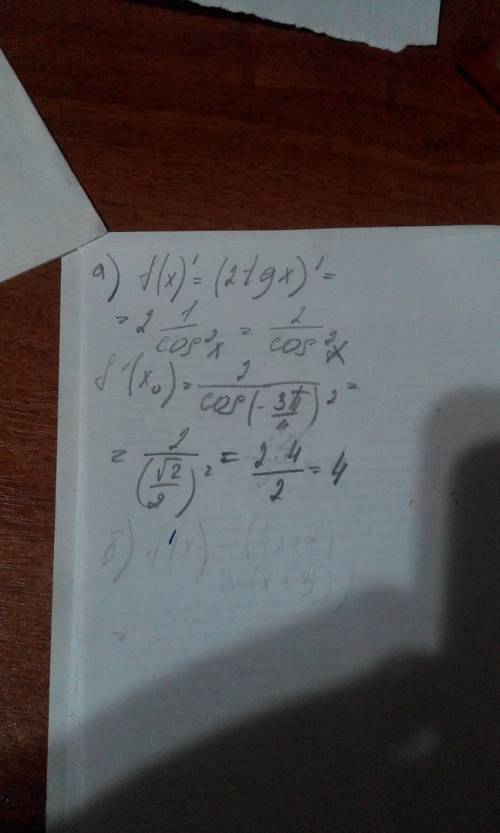 а) f(x)' = (2tgx)' =
= 2 1/cos²x = 2/cos²x
f'(x₀) = 2/cos(-3π/4)² =
= 2/(√2/2)² = 2·4/2 = 4
б) f'(x)
=